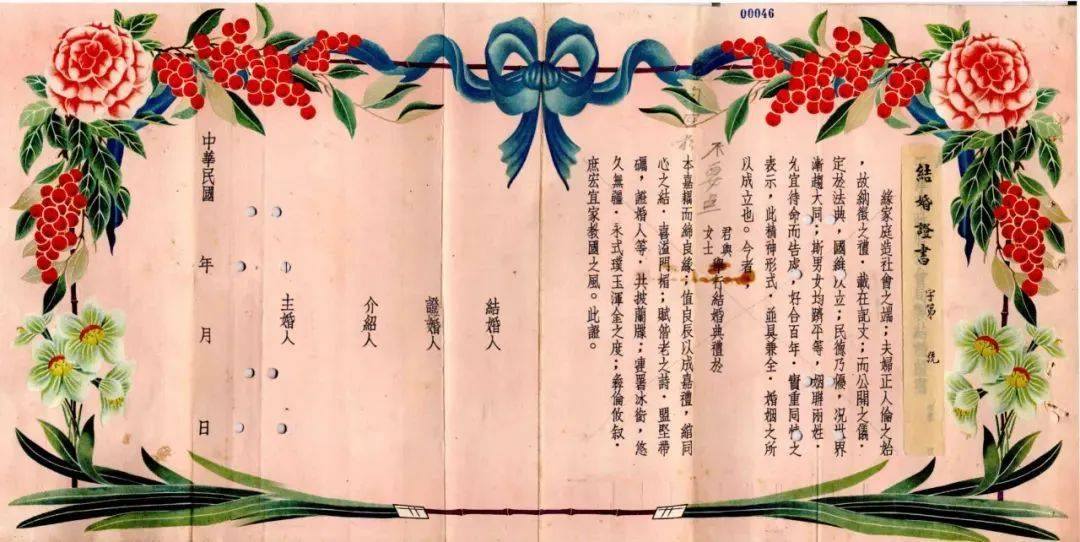 00046
結婚證書
字第 號
緣家庭造社會之端；夫婦正人倫之始
，故納徵之禮，載在記文；而公開之儀，
定於法典，國維以立；民德乃優，況世界
漸趨大同；斯男女均躋平等，姻聯兩姓，
允宜待命而告成，好合百年，實重同情之
表示，此精神形式，並具兼全，婚姻之所
以成立也。今者；
君與
女士
舉行結婚典禮於
不要
本嘉耦而締良緣；值良辰以成嘉禮，綰同
心之結，喜溢門楣；賦偕老之詩，盟堅帶
礪，證婚人等，共披蘭牒；連署冰銜，悠
久無疆，永式璞玉渾金之度；彝倫攸敘，
庶宏宜家教國之風。此證。
結婚人
證婚人
介紹人
主婚人
中華民國 年 月 日